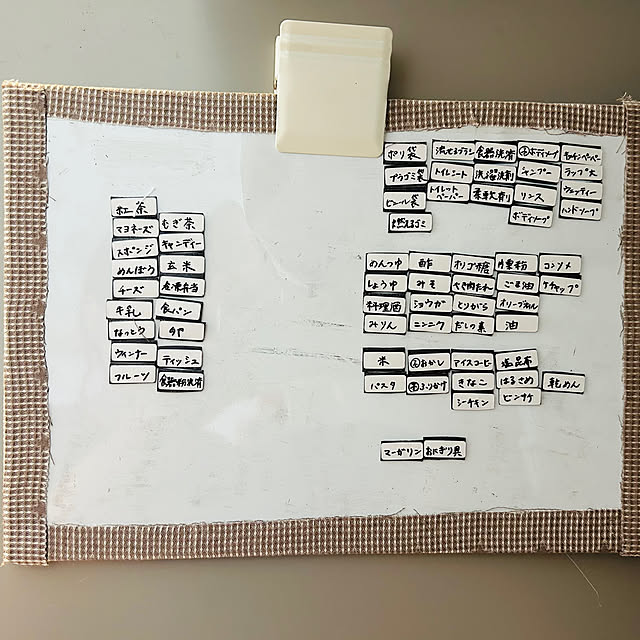 紅茶
マヨネーズ むぎ茶
スポンジ キャンディー
めんぼう 玄米
チーズ 冷凍弁当
牛乳 食パン
なっとう タヤ
ウィンナー ティッシュ
フルーツ 食器用洗済
ポリ袋 流せるブラシ 食器洗済 ボディソープ キッチンペーパー
プラゴミ袋 トイレシート 洗濯洗剤 シャンプー ラップ大
ビニール袋 トイレットペーパー 柔軟剤 リンス ウェッティー
燃えるゴミ ボディソープ ハンドソープ
めんつゆ 酢 オリゴ糖 片栗粉 コンソメ
しょうゆ みそ やき肉たれ ごま油 ケチャップ
料理酒 ショウガ とりがら オリーブオイル
みりん ニンニク だしの素 油
米 おかし アイスコーヒー 塩昆布
パスタ ふりかけ きなこ はるさめ 乾めん
シーチキン ビンサケ
マーガリン おにぎり具